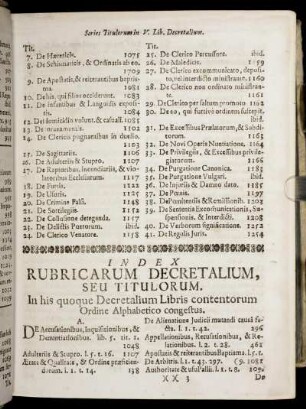 Series Titulorum in V. Lib. Decretalium.
Tit.
7. De Hæreticis. 1075
8. De Schismaticis, & Ordinatis ab eo. 1079
9. De Apostatis, & reiterantibus baptisma. 1081
10. De his, qui filios occiderunt. 1083
11. De infantibus & Languidis expositis. 1084
13. De torneamentis. 1102
14. De Clericis pugnantibus in duello. 1103
15. De Sagittariis. 1106
16. De Adulteriis & Stupro. 1107
17. De Raptoribus, incendiariis, & violatoribus Ecclesiarum. 1117
18. De Furtis. 1122
19. De Usuris. 1125
20. De Crimine Falsi. 1148
21. De Sortilegiis. 1152
22. De Collusione detegenda. 1157
24. De Clerico Venatore. 1158
Tit.
25. De Clerico Percussore. ibid.
26. De Maledicis. 1159
27. De Clerico excommunicato, deposito, vel interdicto ministrant. 1160
28. De Clerico non ordinato ministrante. 1161
29. De Clerico per saltum promoto 1162
30. De eo, qui furtive ordinem suscepit. ibid.
31. De Excessibus Prælatorum, & Subditorum. 1163
32. De Novi Operis Nuntiatione. 1164
33. De Privilegiis, & Excessibus privilegiatorum. 1166
34. De Purgatione Canonica. 1183
35. De Purgatione Vulgari. ibid.
36. De Injuriis & Damno dato. 1185
37. De Pœnis. 1197
38. De Pœnitentiis & Remissionib.
39. De Sententia Excommunicationis, Suspensionis, & Interdicti. 1208
40. De Verborum significatione. 1252
41. De Regulis Juris. 1254
INDEX
RUBRICARUM DECRETALIUM,
SEU TITULORUM.
In his quoque Decretalium Libris contentorum
Ordine Alphabetico congestus.
A.
DE Accusationibus, Inquisitionibus, &
Denuntiationibus. lib. 5. tit. 1. 1048
Adulteriis & Stupro. l. 5. t. 16. 1107
Ætate & Qualitate, & Ordine præficiendorum. l. 1. t. 14. 138
De Alienatione Judicii mutandi causa facta. l. 1. t. 42. 296
Appellationibus, Recusationibus, & Relationibus. l. 2. t. 28. 461
Apostatis & reiterantibus Baptisma. l. 5. t.
De Arbitris. l. 1. t. 43.
Authoritate & usu Pallii. l. 1. t. 8.
XX 3
De